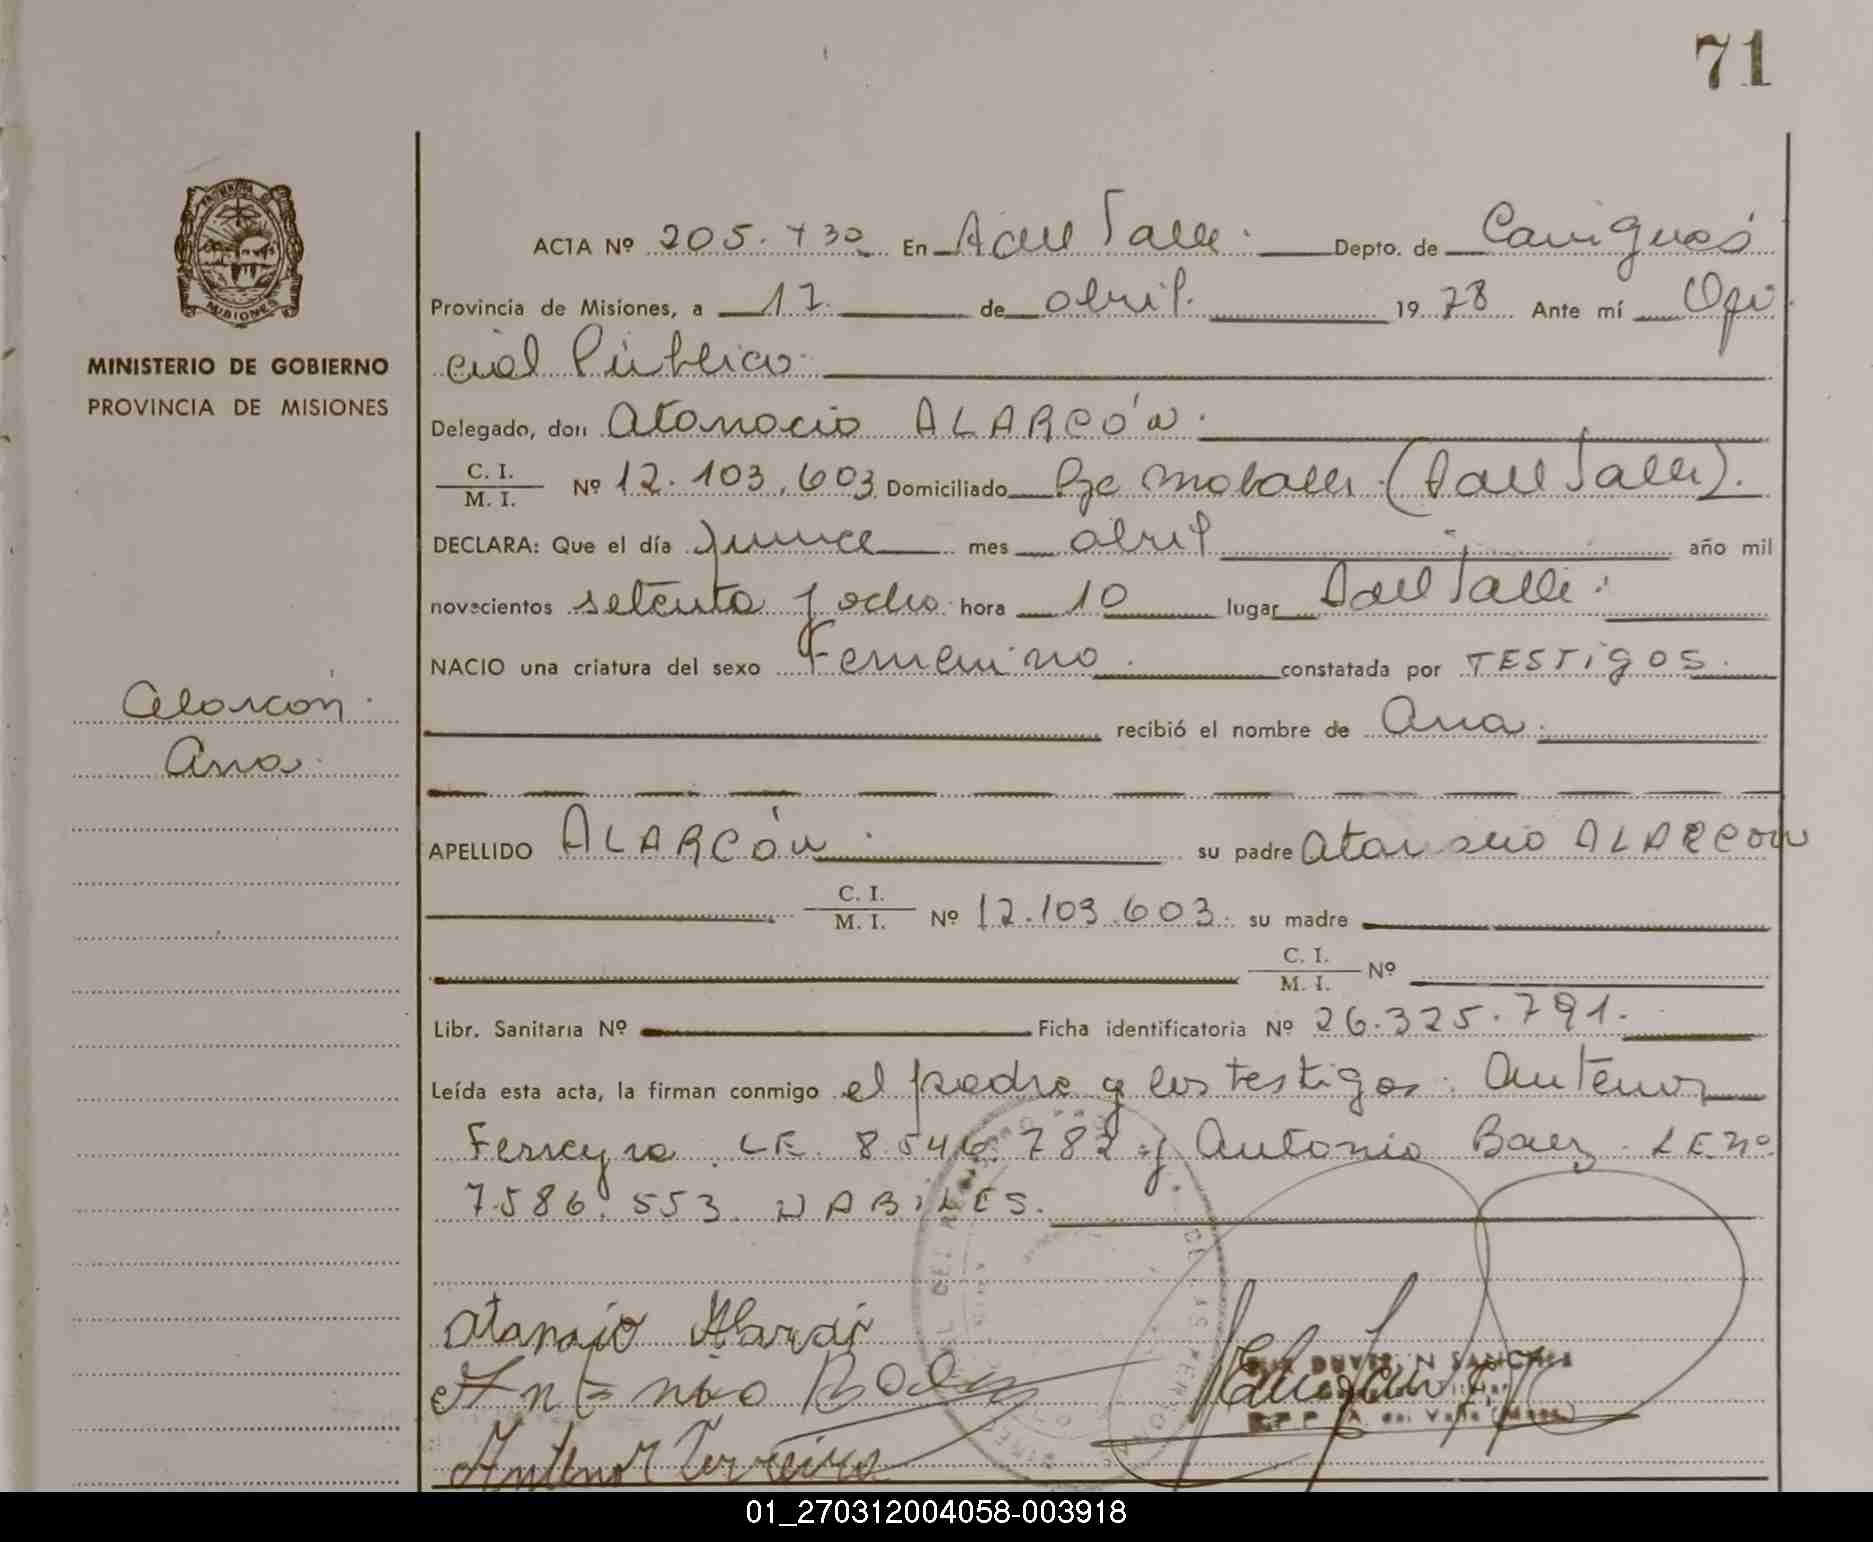 71
ACTA Nº 205.430 En A del Valle. Depto. de Cainguás
Provincia de Misiones, a 17. de abril. 1978 Ante mí Ofi
cial Público.
MINISTERIO DE GOBIERNO
PROVINCIA DE MISIONES
Delegado, don Atanacio ALARCÓN.
C. I.
M. I. Nº 12.103.603 Domiciliado Pje (A del Valle).
DECLARA: Que el día quince mes abril año mil
novecientos setenta y ocho hora 10 lugar A del Valle.
NACIO una criatura del sexo Femenino. constatada por TESTIGOS.
Alarcón.
Ana.
recibió el nombre de Ana.
APELLIDO ALARCÓN. su padre Atanacio ALARCON
C. I.
M. I. Nº 12.103.603. su madre
C. I.
M. I. Nº
Libr. Sanitaria Nº Ficha identificatoria Nº 26.325.791.
Leída esta acta, la firman conmigo el padre y los testigos: Antenor
Ferreyra. LE. 8.546.782 y Antonio Baez. LE nº
7.586.553. HABILES.
Atanacio Alarcón
Antonio Baez
Antenor Ferreira
SANCHEZ
01_270312004058-003918